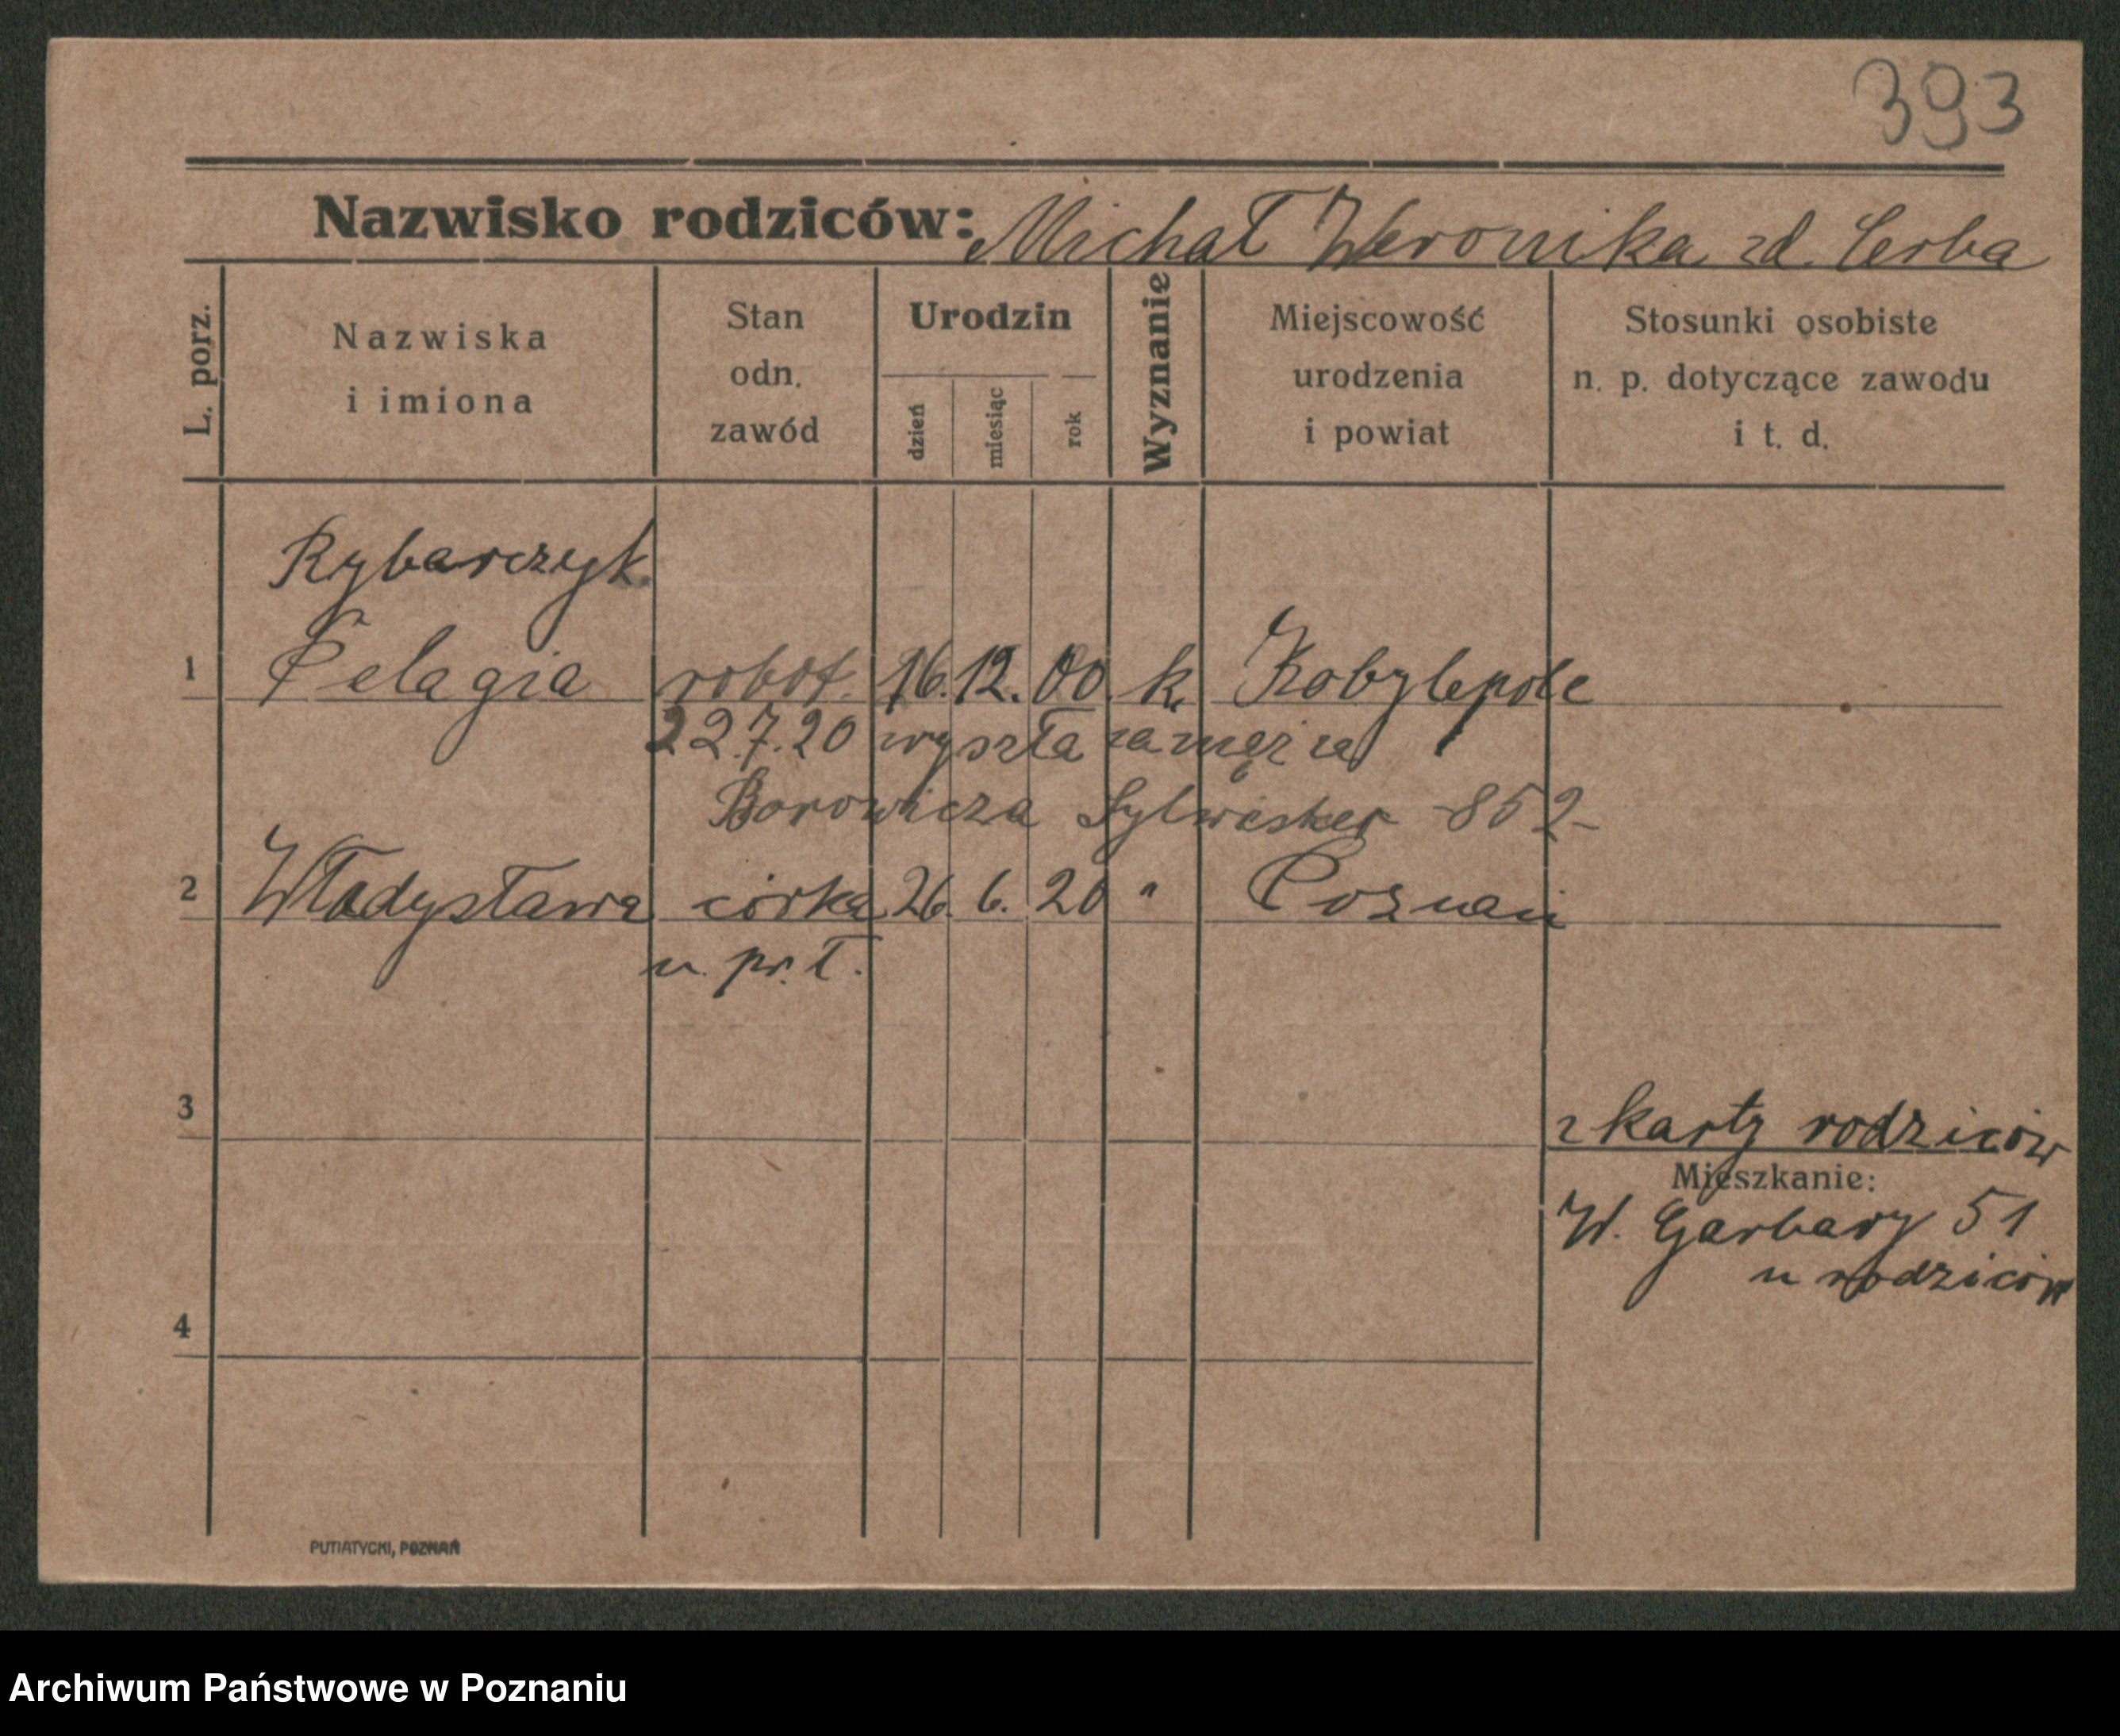 393
Nazwisko rodziców: Michał Weronika zd. Cerba
L. porz.
Nazwiska
i imiona
Stan
odn.
zawód
Urodzin
dzień
miesiąc
rok
Wyznanie
Miejscowość
urodzenia
i powiat
Stosunki osobiste
n. p. dotyczące zawodu
i t. d.
Rybarczyk
1 Pelagia robot. 16. 12. 00. k. Kobylepole
22.7.20 wyszła zamęż za
Borowicza Sylwester -852-
2 Władysława córka 26. 6. 20 " Poznań
u. pr. ł.
3
z karty rodziców
Mieszkanie:
W. Garbary 51
u rodziców
4
PUTIATYCKI, POZNAŃ
Archiwum Państwowe w Poznaniu